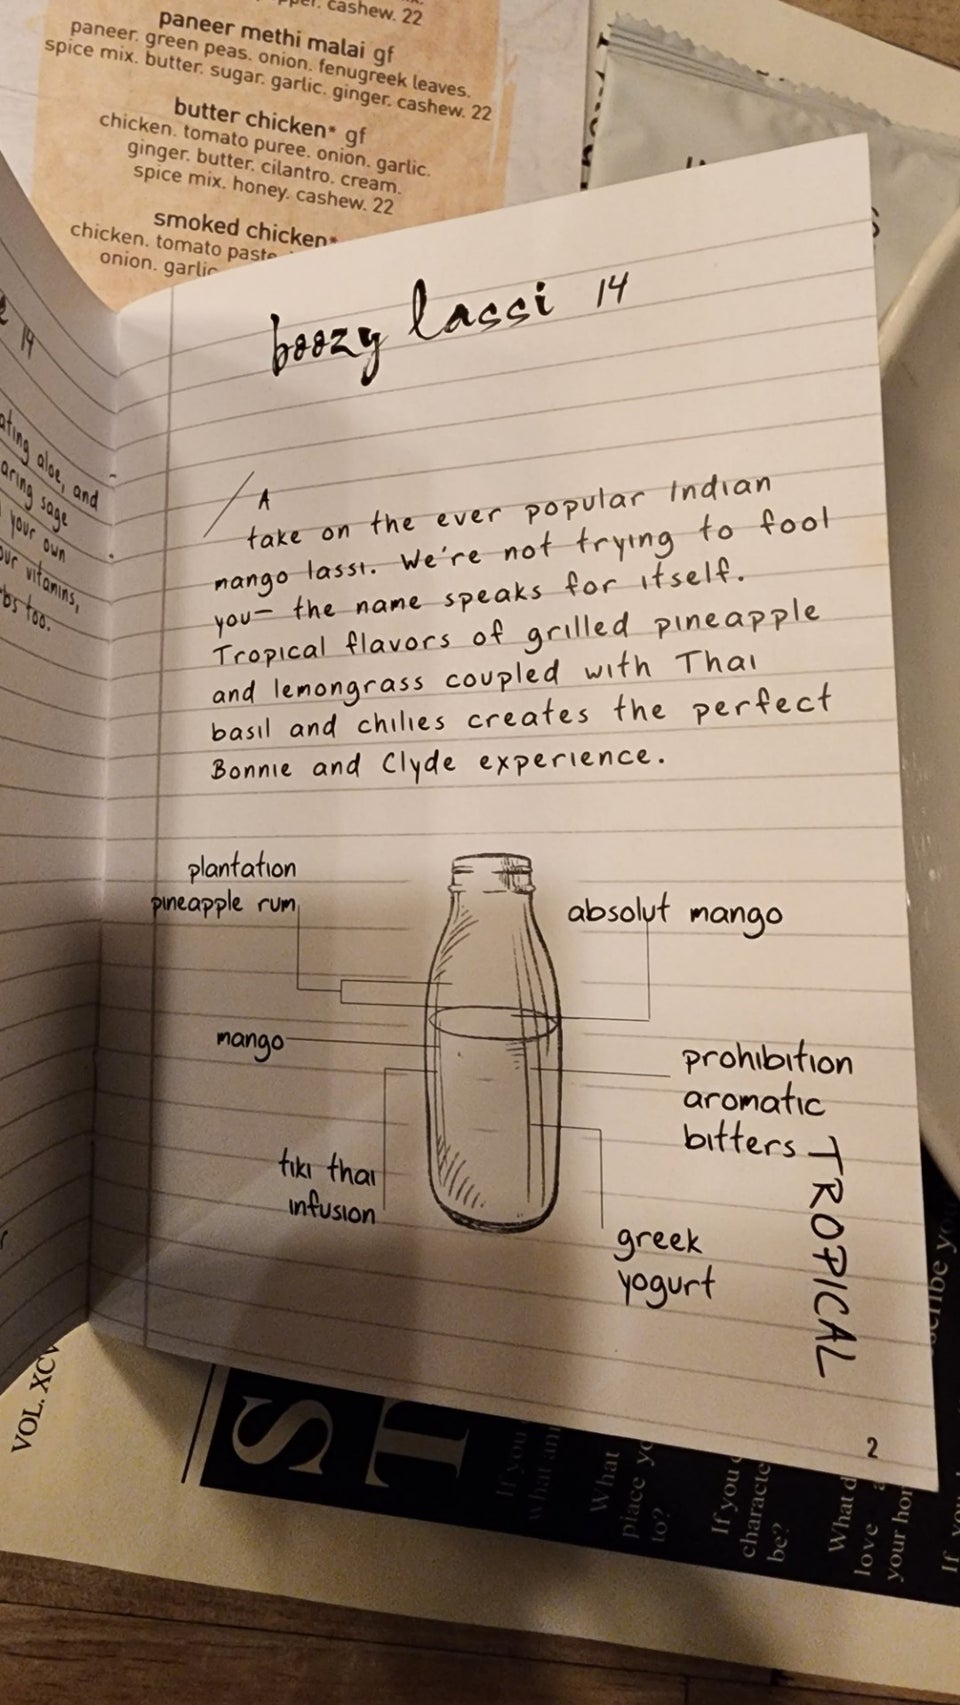 cashew. 22
paneer methi malai gf
paneer. green peas. onion. fenugreek leaves.
spice mix. butter. sugar. garlic. ginger. cashew. 22
butter chicken* gf
chicken. tomato puree. onion. garlic.
ginger. butter. cilantro. cream.
spice mix. honey. cashew. 22
smoked chicken*
chicken. tomato paste
onion. garlic
14
aloe, and
sage
your own
vitamins,
too.
boozy lassi 14
A
take on the ever popular Indian
mango lassi. We're not trying to fool
you— the name speaks for itself.
Tropical flavors of grilled pineapple
and lemongrass coupled with Thai
basil and chilies creates the perfect
Bonnie and Clyde experience.
plantation
pineapple rum
absolut mango
mango
prohibition
aromatic
bitters
tiki thai
infusion
greek
yogurt
TROPICAL
2
VOL. XCV
ST
If you
what
What
place
to?
If you
characte
be?
What d
love a
your ho
If you